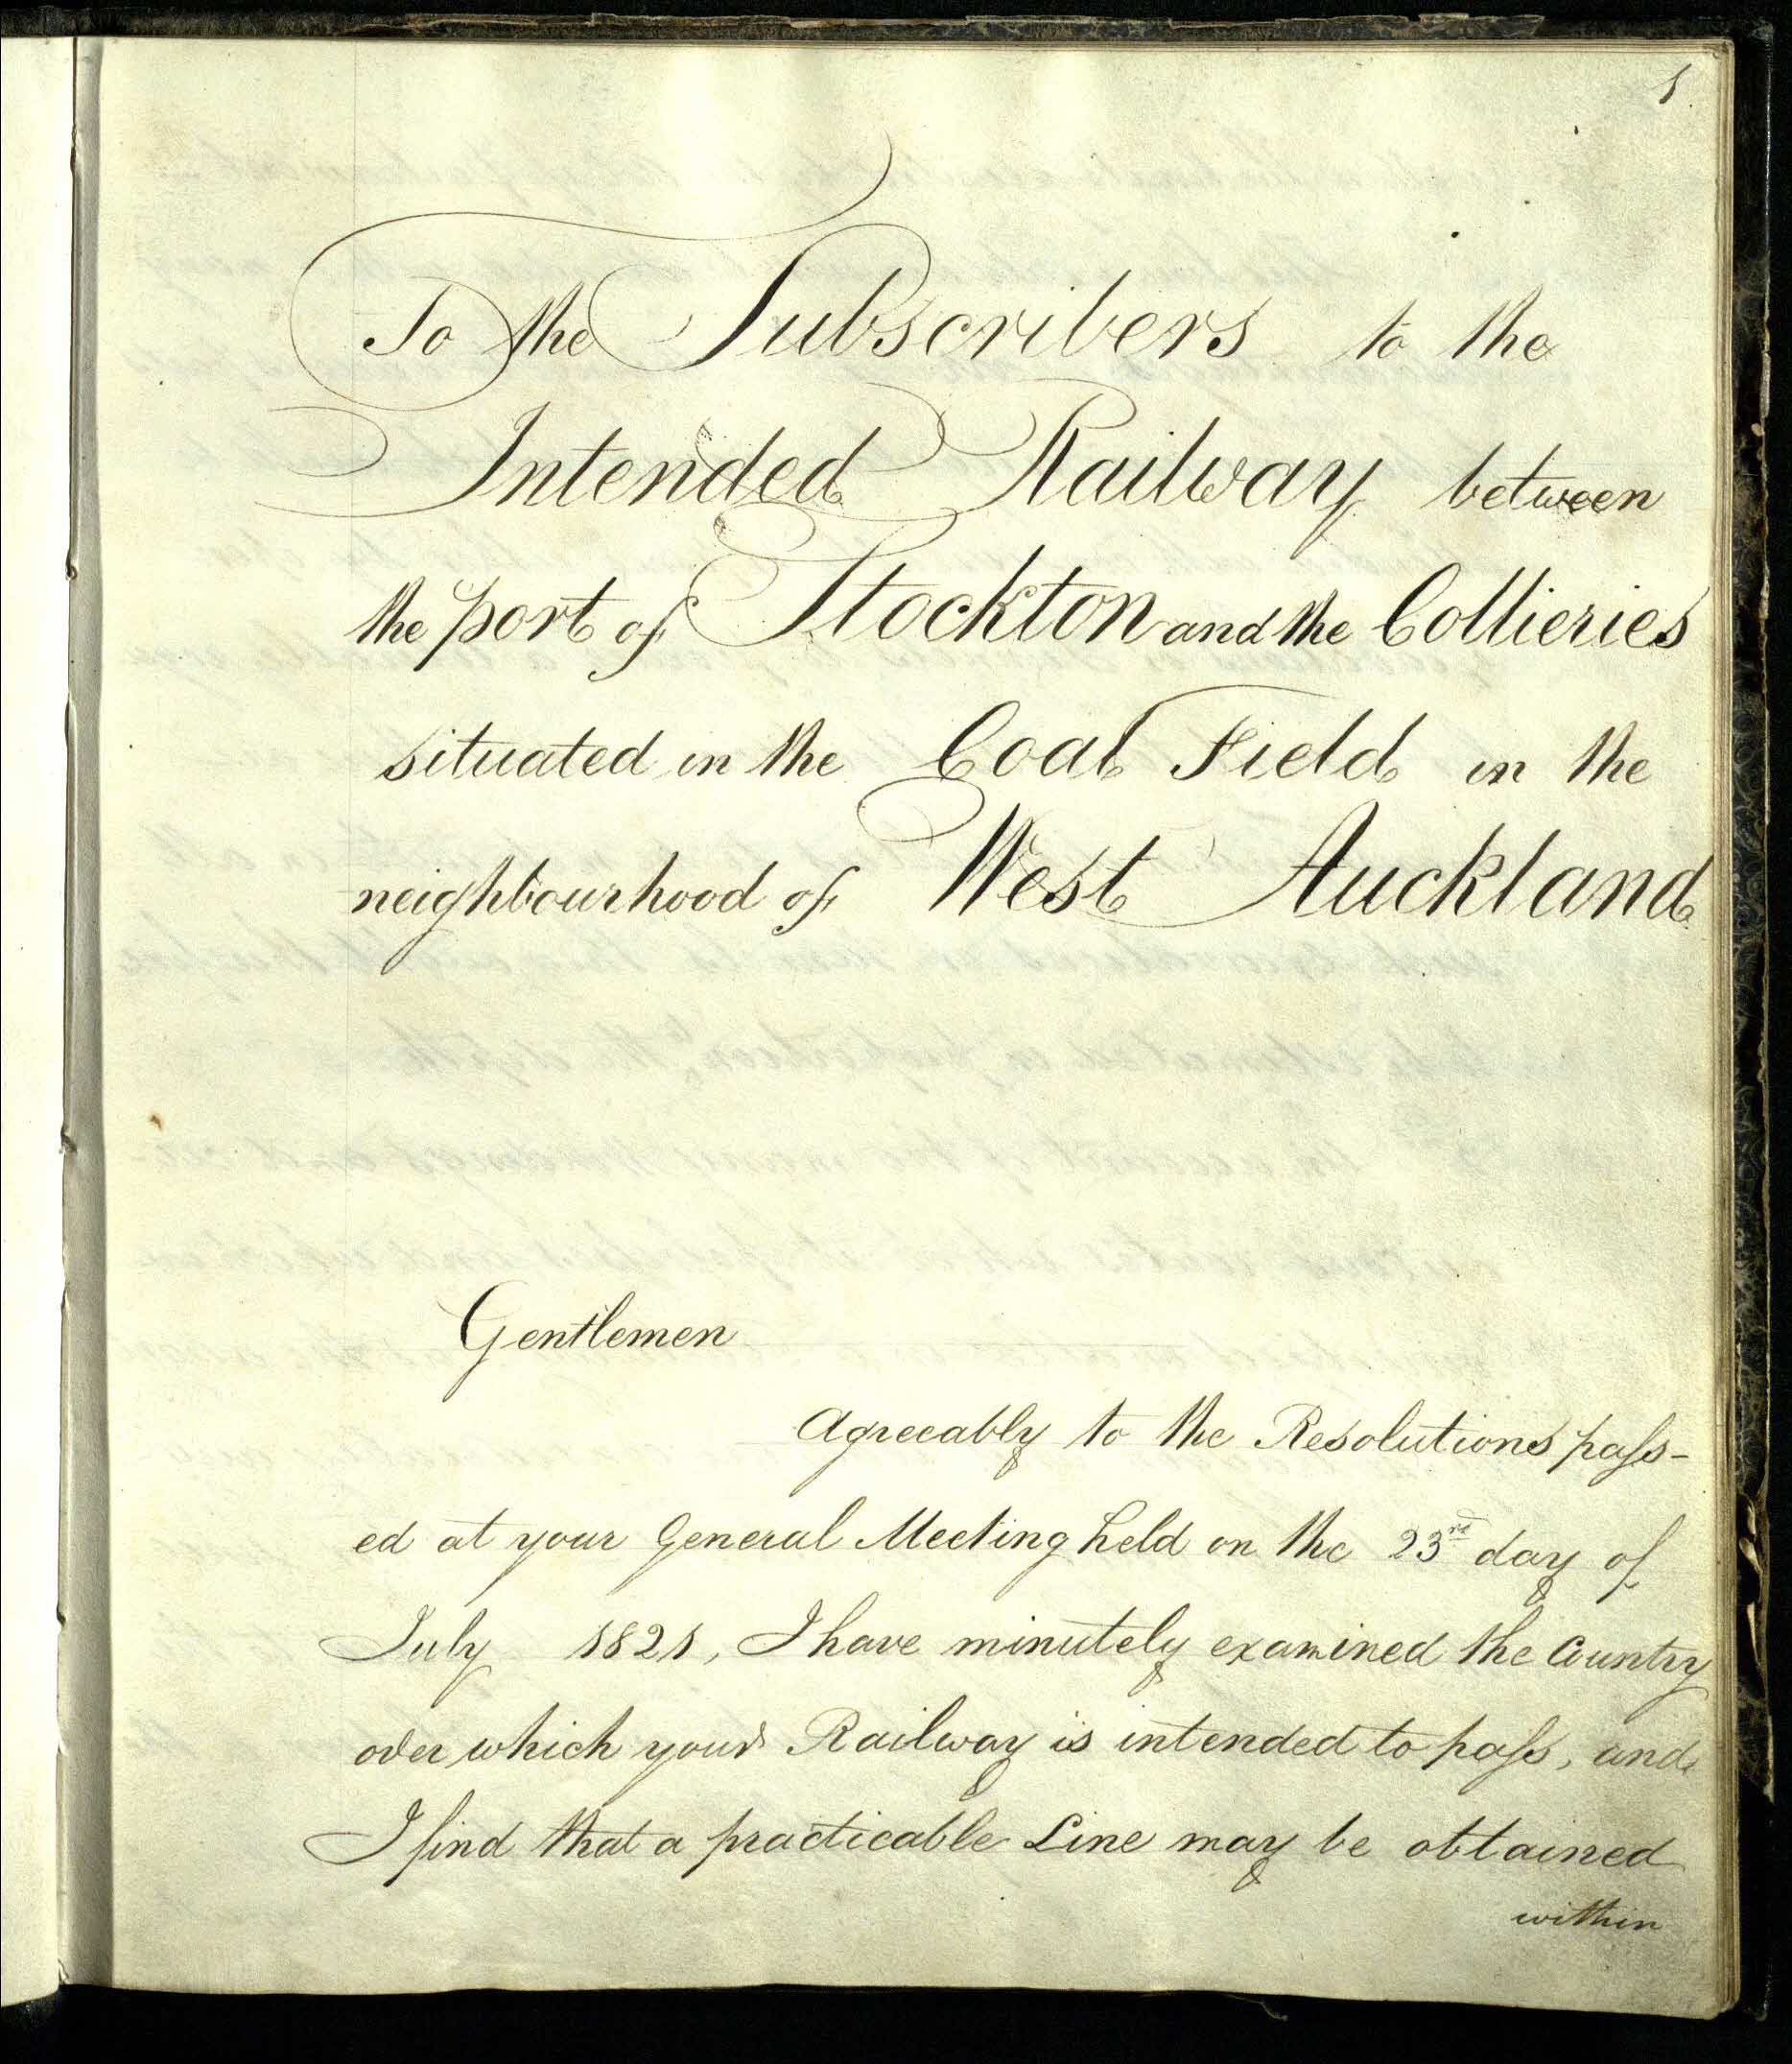 1.
To the Subscribers to the
Intended Railway between
the port of Stockton and the Collieries
situated in the Coal Field in the
neighbourhood of West Auckland
Gentlemen
Agreeably to the Resolutions paſs-
ed at your General Meeting held on the 23rd day of
July 1821, I have minutely examined the Country
over which your Railway is intended to paſs, and
I find that a practicable Line may be obtained
within